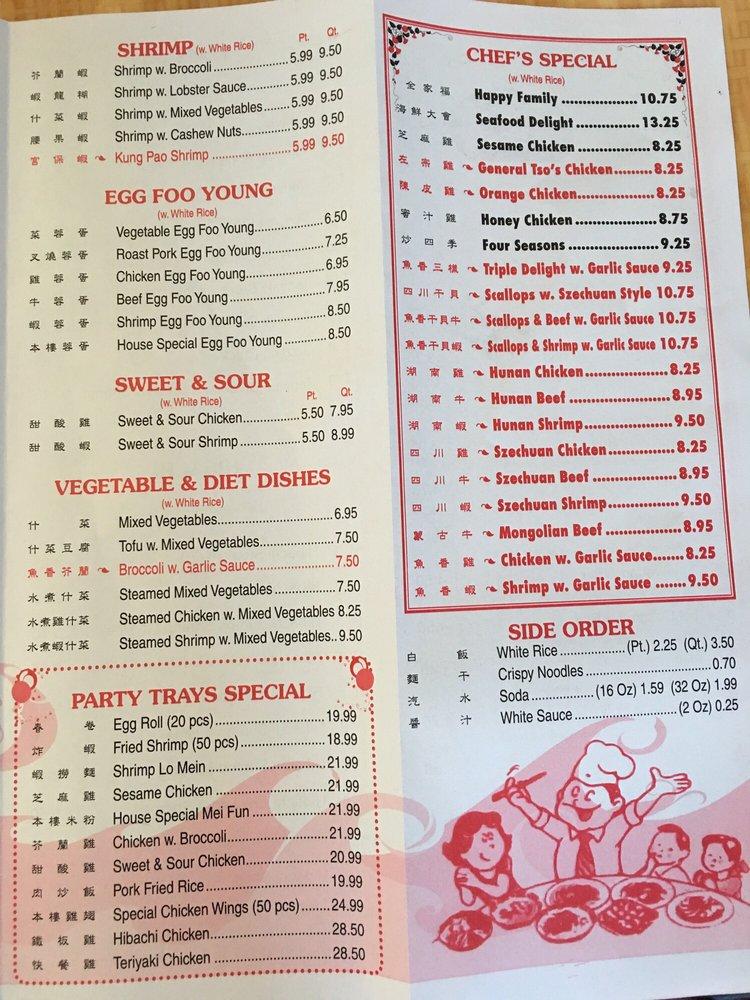 SHRIMP (w. White Rice)
Pt. Qt.
芥蘭蝦 Shrimp w. Broccoli 5.99 9.50
蝦龍糊 Shrimp w. Lobster Sauce 5.99 9.50
什菜蝦 Shrimp w. Mixed Vegetables 5.99 9.50
腰果蝦 Shrimp w. Cashew Nuts 5.99 9.50
宮保蝦 Kung Pao Shrimp 5.99 9.50
EGG FOO YOUNG
(w. White Rice)
菜蓉蛋 Vegetable Egg Foo Young 6.50
叉燒蓉蛋 Roast Pork Egg Foo Young 7.25
雞蓉蛋 Chicken Egg Foo Young 6.95
牛蓉蛋 Beef Egg Foo Young 7.95
蝦蓉蛋 Shrimp Egg Foo Young 8.50
本樓蓉蛋 House Special Egg Foo Young 8.50
SWEET & SOUR
(w. White Rice)
Pt. Qt.
甜酸雞 Sweet & Sour Chicken 5.50 7.95
甜酸蝦 Sweet & Sour Shrimp 5.50 8.99
VEGETABLE & DIET DISHES
(w. White Rice)
什菜 Mixed Vegetables 6.95
什菜豆腐 Tofu w. Mixed Vegetables 7.50
魚香芥蘭 Broccoli w. Garlic Sauce 7.50
水煮什菜 Steamed Mixed Vegetables 7.50
水煮雞什菜 Steamed Chicken w. Mixed Vegetables 8.25
水煮蝦什菜 Steamed Shrimp w. Mixed Vegetables 9.50
PARTY TRAYS SPECIAL
春卷 Egg Roll (20 pcs) 19.99
炸蝦 Fried Shrimp (50 pcs) 18.99
蝦撈麵 Shrimp Lo Mein 21.99
芝麻雞 Sesame Chicken 21.99
本樓米粉 House Special Mei Fun 21.99
芥蘭雞 Chicken w. Broccoli 21.99
甜酸雞 Sweet & Sour Chicken 20.99
肉炒飯 Pork Fried Rice 19.99
本樓雞翅 Special Chicken Wings (50 pcs) 24.99
鐵板雞 Hibachi Chicken 28.50
快餐雞 Teriyaki Chicken 28.50
CHEF'S SPECIAL
(w. White Rice)
全家福 Happy Family 10.75
海鮮大會 Seafood Delight 13.25
芝麻雞 Sesame Chicken 8.25
左宗雞 General Tso's Chicken 8.25
陳皮雞 Orange Chicken 8.25
蜜汁雞 Honey Chicken 8.75
炒四季 Four Seasons 9.25
魚香三樣 Triple Delight w. Garlic Sauce 9.25
四川干貝 Scallops w. Szechuan Style 10.75
魚香干貝牛 Scallops & Beef w. Garlic Sauce 10.75
魚香干貝蝦 Scallops & Shrimp w. Garlic Sauce 10.75
湖南雞 Hunan Chicken 8.25
湖南牛 Hunan Beef 8.95
湖南蝦 Hunan Shrimp 9.50
四川雞 Szechuan Chicken 8.25
四川牛 Szechuan Beef 8.95
四川蝦 Szechuan Shrimp 9.50
蒙古牛 Mongolian Beef 8.95
魚香雞 Chicken w. Garlic Sauce 8.25
魚香蝦 Shrimp w. Garlic Sauce 9.50
SIDE ORDER
白飯 White Rice (Pt.) 2.25 (Qt.) 3.50
麵干 Crispy Noodles 0.70
汽水 Soda (16 Oz) 1.59 (32 Oz) 1.99
醬汁 White Sauce (2 Oz) 0.25